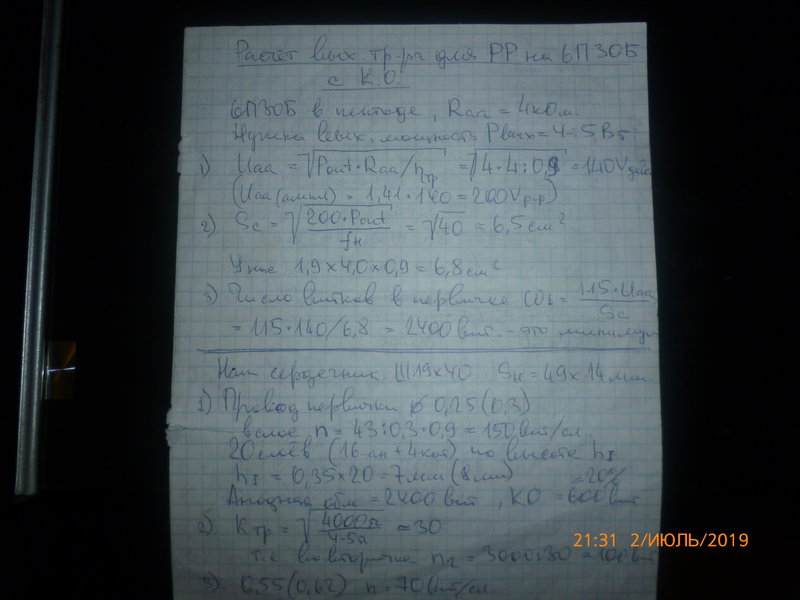 Расчёт вых. тр-ра для PP на 6П30Б
с К.О.
6П30Б в пентоде, Raa = 4кОм.
Нужна вых. мощность Pвых = 4-5Вт
1) Uaa = √Pout·Raa/ηтр = √4·4:0,8 = 140V действ
(Uaa(ампл) = 1,41·140 = 200Vp-p)
2) Sc = √200·Pout/fн = √40 ≈ 6,5см²
У нас 1,9×4,0×0,9 ≈ 6,8см²
3) Число витков в первичке ω1 = 115·Uaa/Sc
= 115·140/6,8 = 2400 вит. - это минимум
Наш сердечник Ш19×40 Sн = 49×14мм.
1) Провод первички ø 0,25(0,3)
в слое n = 43:0,3·0,9 = 150 вит/сл.
20 слоёв (16-ан + 4кат) по высоте hI
hI = 0,35×20 = 7мм (8мм) =20%
Анодная обм = 2400 вит, КО = 600 вит
2) Kтр = √4000Ω/4-5Ω ≈ 30
т.е. во вторичке n2 = 3000:30 = 100 вит
3). 0,55(0,62) n = 70 вит/сл.
21:31 2/ИЮЛЬ/2019